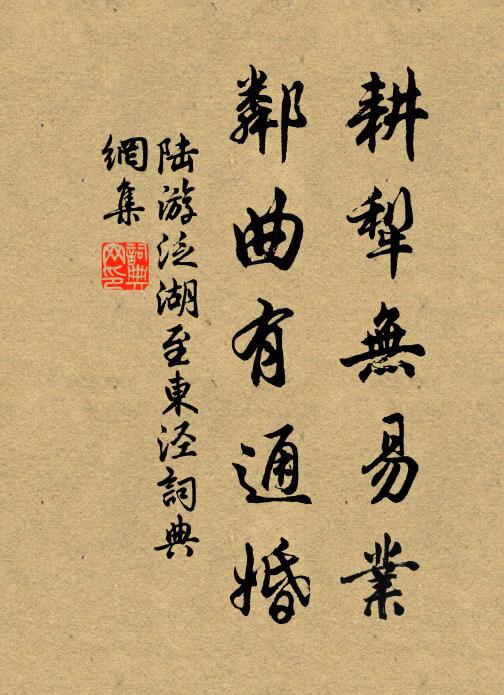 耕犁無易業
鄰曲有通婚
陆游泛湖至東涇詞典
網集
詞典
网印